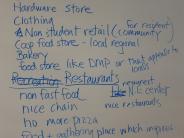 Hardware Store
Clothing
Non student retail (community) for resident
Coop food store - local regional
Bakery
food store like DMP or that appeals to locals
Recreation Restaurants
non fast food
N.E center
nice chain
nice restaurants
no more pizza
food + gathering place which